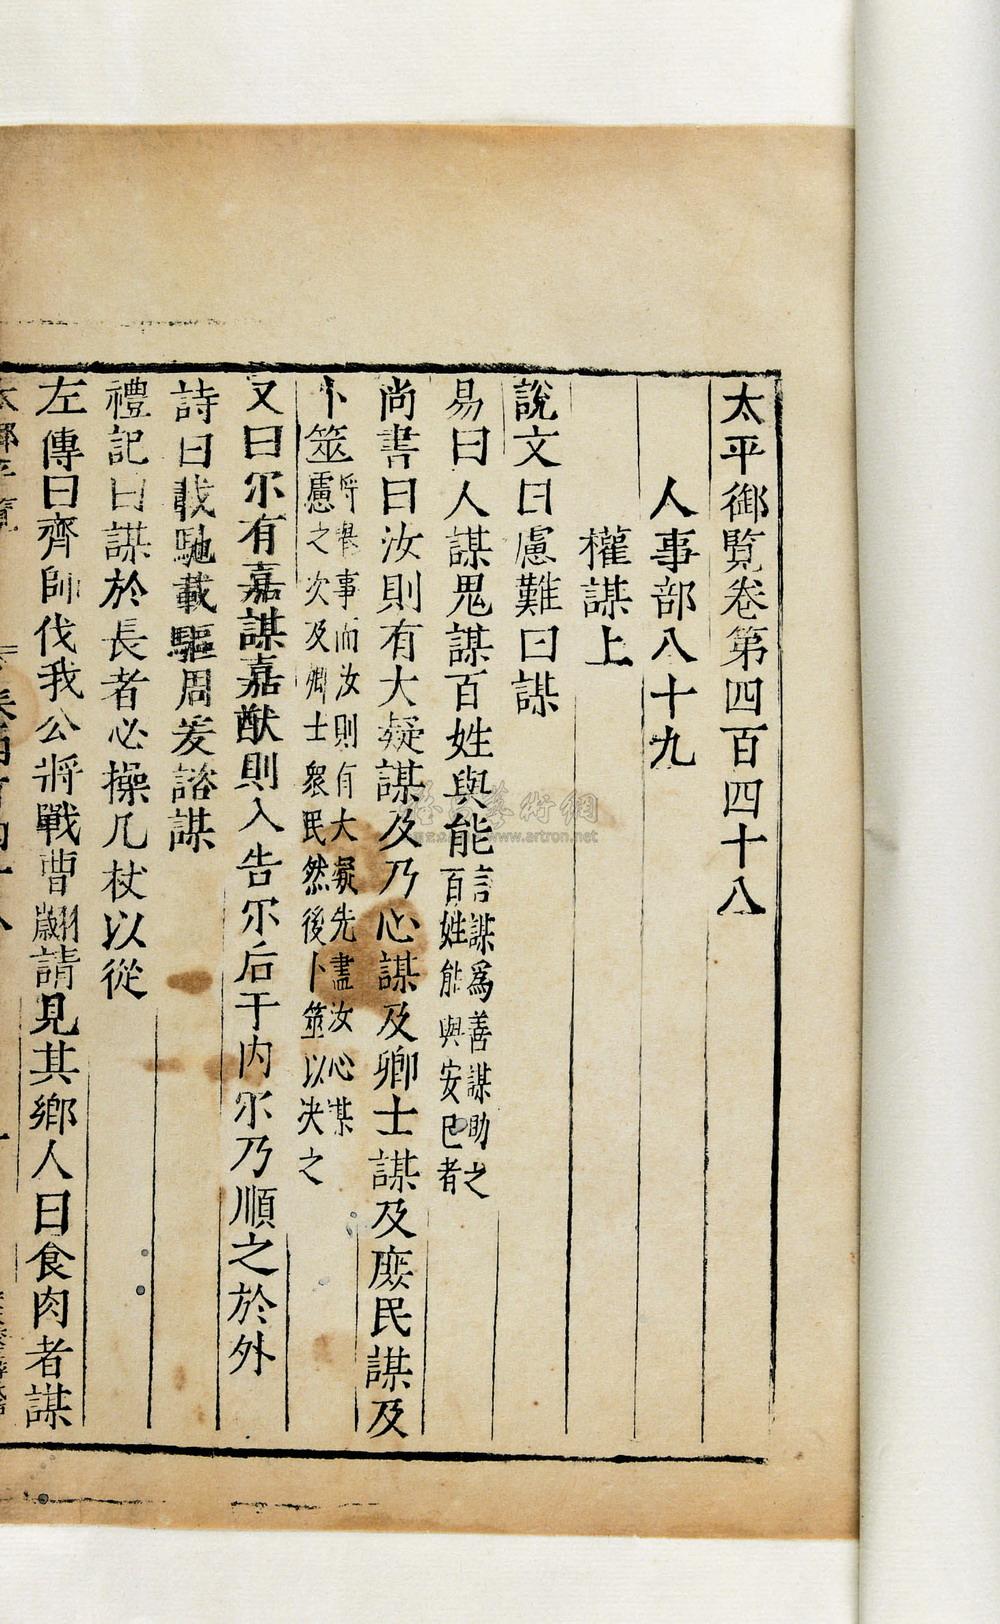 太平御覧卷第四百四十八
人事部八十九
權謀上
說文曰慮難曰謀
易曰人謀鬼謀百姓與能言謀爲善謀助之百姓能與安巳者
尚書曰汝則有大疑謀及乃心謀及卿士謀及庶民謀及
卜筮將舉事而汝則有大疑先盡汝心謀慮之次及卿士衆民然後卜筮以决之
又曰尓有嘉謀嘉猷則入告尓后于内尓乃順之於外
詩曰載馳載驅周爰諮謀
禮記曰謀於長者必操几杖以從
左傳曰齊師伐我公將戰曹翽請見其鄉人曰食肉者謀
www.artron.net